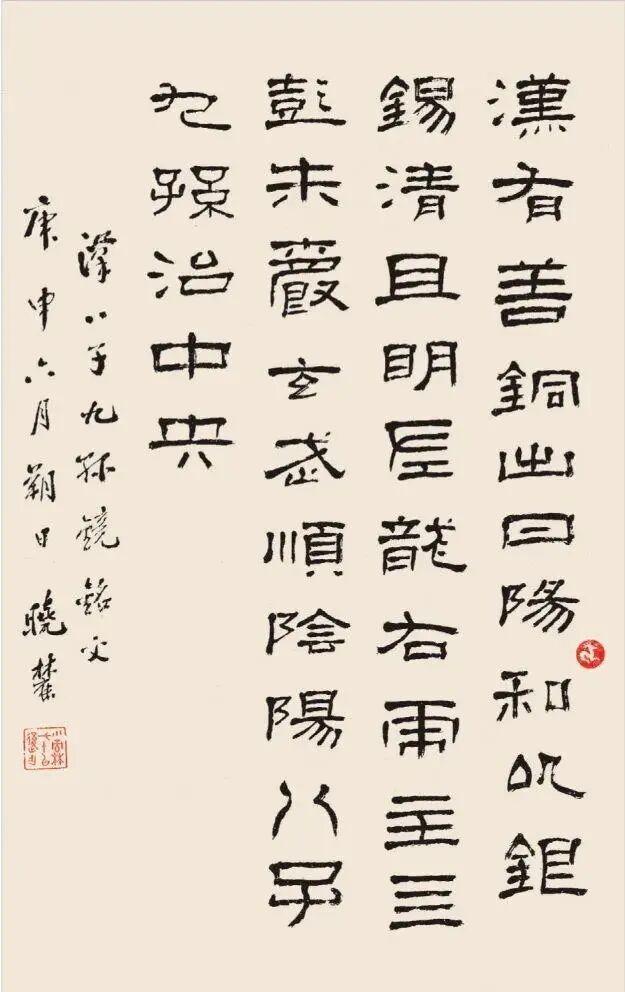 漢有善銅出丹陽和以銀
錫清且明左龍右虎主三
彭朱爵玄武順陰陽八子
九孫治中央
漢八子九孫鏡銘文
庚申六月朔日 曉